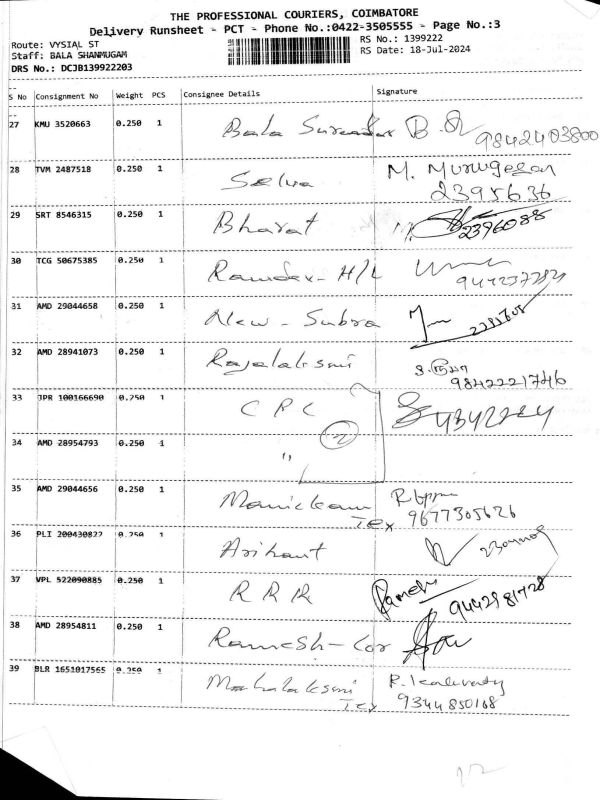 THE PROFESSIONAL COURIERS, COIMBATORE
Delivery Runsheet - PCT - Phone No.:0422-3505555 - Page No.:3
Route: VYSIAL ST
Staff: BALA SHANMUGAM
DRS No.: DCJB139922203
RS No.: 1399222
RS Date: 18-Jul-2024
S No Consignment No Weight PCS Consignee Details Signature
27 KMU 3520663 0.250 1 Bala B. 9842403800
28 TVM 2487518 0.250 1 Selva M. Murugesan
2395636
29 SRT 8546315 0.250 1 Bharat 2396088
30 TCG 50675385 0.250 1 Ramdev - H/L
31 AMD 29044658 0.250 1 New - Subra
32 AMD 28941073 0.250 1 Rajalaksmi
9842221746
33 JPR 100166690 0.250 1 CPC
2
34 AMD 28954793 0.250 1 "
35 AMD 29044656 0.250 1 Manickam
Tex 9677305626
36 PLI 200430822 0.250 1 Arihant
37 VPL 522090885 0.250 1 R R R Ramesh
9442981728
38 AMD 28954811 0.250 1 Ramesh - Cor
39 BLR 1651017565 0.250 1 Mahalaksmi
Tex 9344850168
12